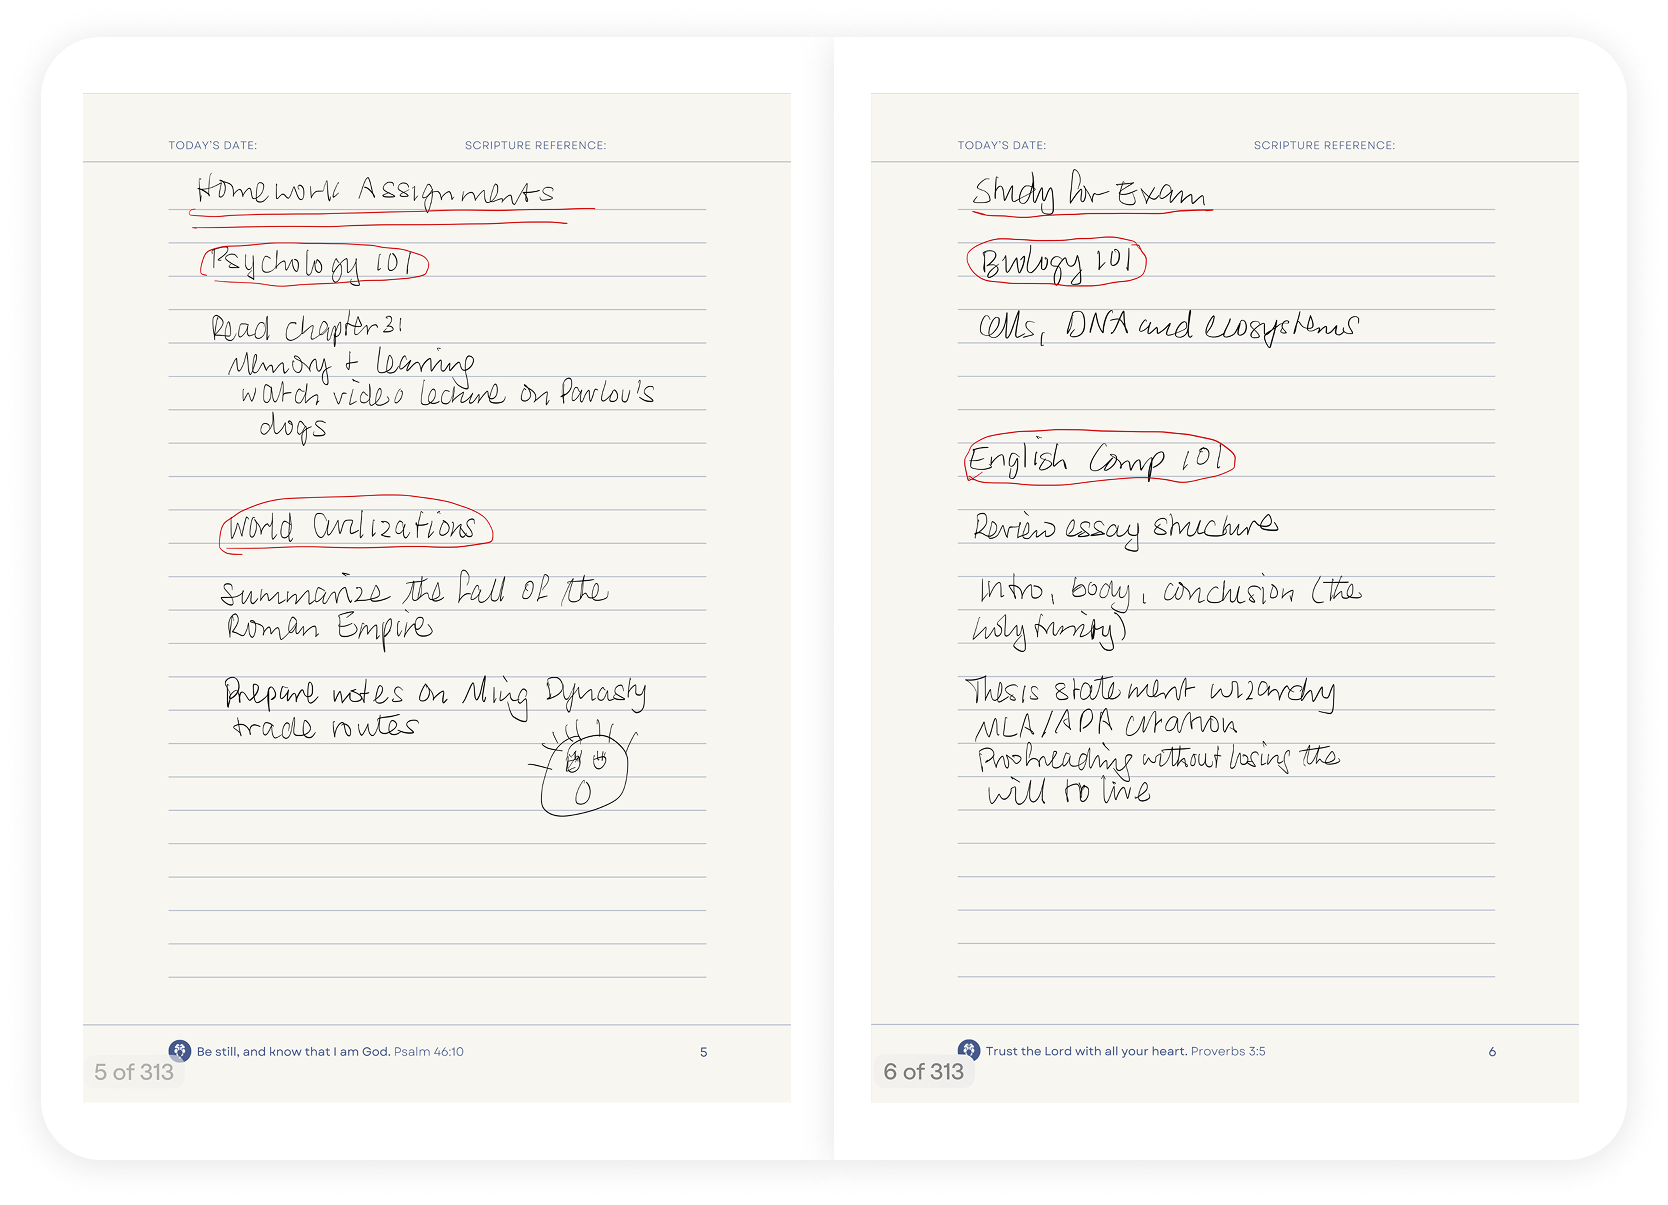 TODAY'S DATE: SCRIPTURE REFERENCE:
Homework Assignments
Psychology 101
Read chapter 31
Memory + learning
watch video lecture on Pavlov's
dogs
World Civilizations
summarize the fall of the
Roman Empire
Prepare notes on Ming Dynasty
trade routes
Be still, and know that I am God. Psalm 46:10 5
5 of 313
TODAY'S DATE: SCRIPTURE REFERENCE:
Study for Exam
Biology 101
Cells, DNA and ecosystems
English Comp 101
Review essay structure
Intro, body, conclusion (the
holy trinity)
Thesis statement wizardry
MLA/APA citation
Proofreading without losing the
will to live
Trust the Lord with all your heart. Proverbs 3:5 6
6 of 313